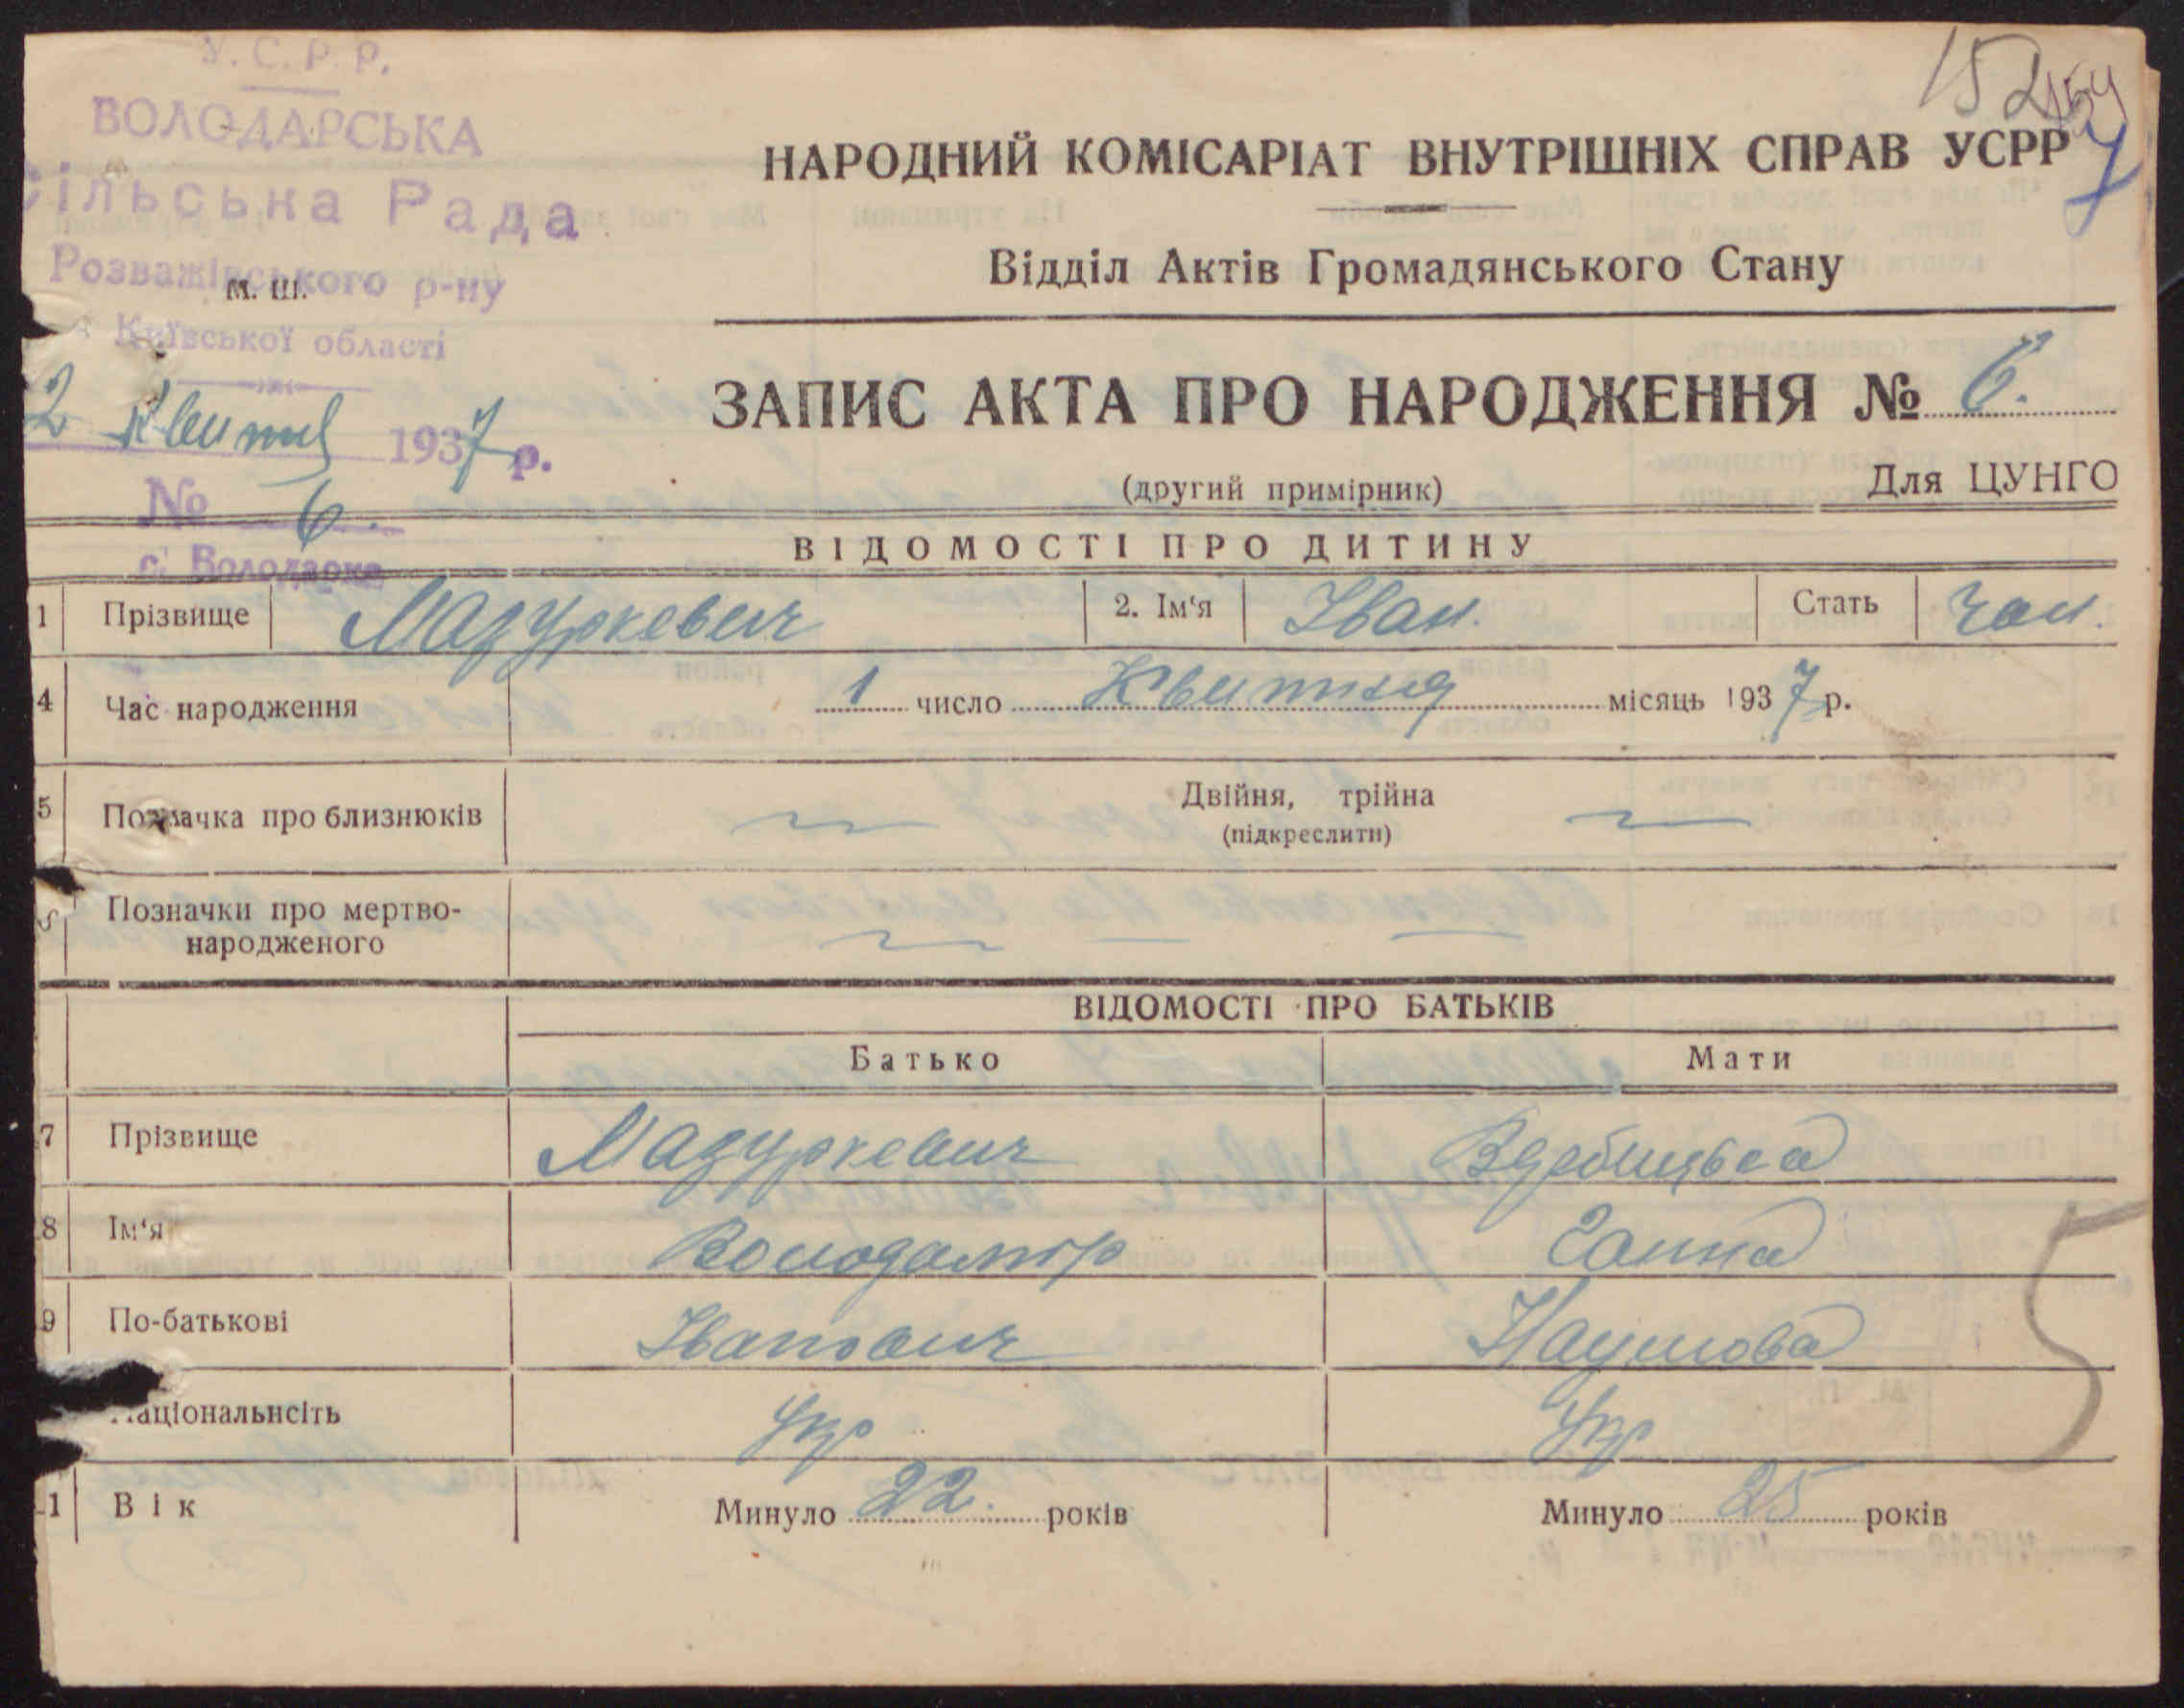 У.С.Р.Р.
ВОЛОДАРСЬКА
сільська Рада
Розважівського р-ну
м. ш.
Київської області
2 Квитня 1937 р.
№ 6.
с. Володарка
152
154
НАРОДНИЙ КОМІСАРІАТ ВНУТРІШНІХ СПРАВ УСРР
Відділ Актів Громадянського Стану
ЗАПИС АКТА ПРО НАРОДЖЕННЯ № 6.
(другий примірник)
Для ЦУНГО
ВІДОМОСТІ ПРО ДИТИНУ
1 Прізвище Мазуркевич 2. Ім'я Іван. Стать чол.
4 Час народження 1 число Квитня місяць 1937 р.
5 Позначка про близнюків Двійня, трійна
(підкреслити)
Позначки про мертво-
народженого
ВІДОМОСТІ ПРО БАТЬКІВ
Батько Мати
7 Прізвище Мазуркевич
8 Ім'я Володамір Ганна
9 По-батькові Іванович Наумова
Національнсіть Укр Укр
1 Вік Минуло 22. років Минуло 25 років